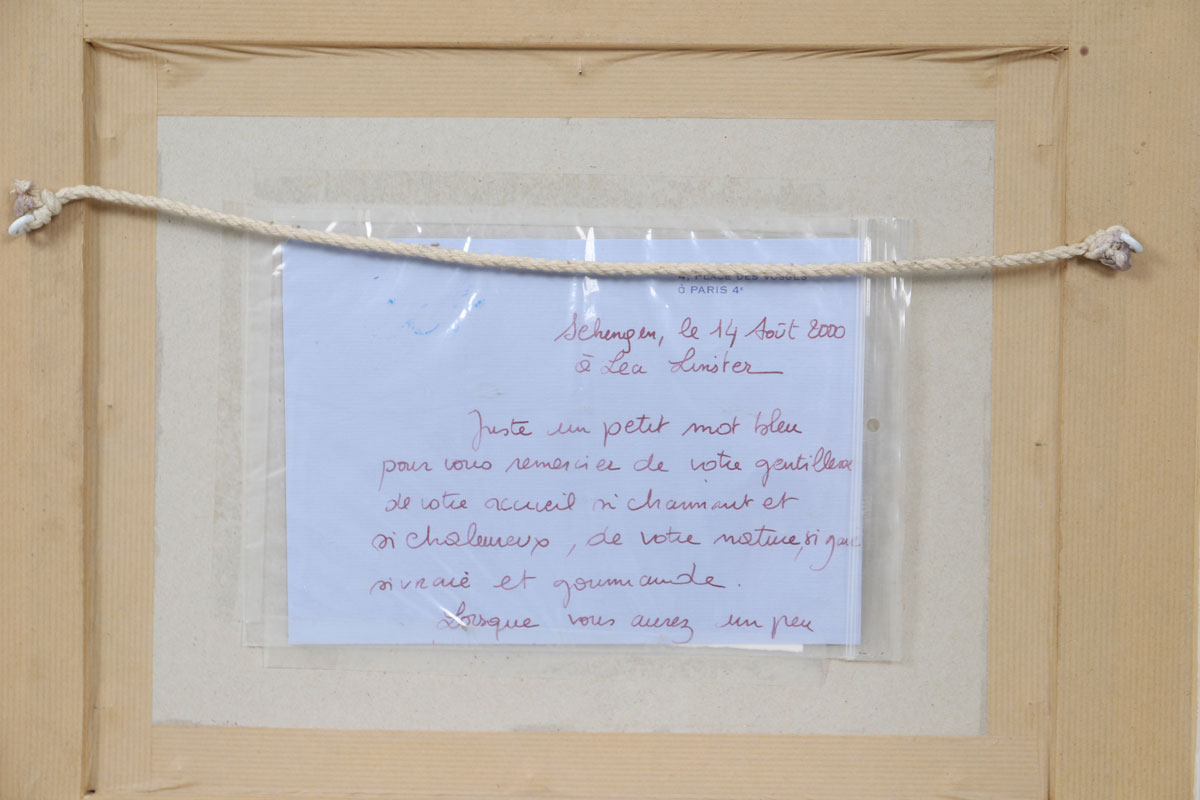 4, PLACE DES VOSGES
à PARIS 4e
Schengen, le 14 Août 2000
à Léa Linster
Juste un petit mot bleu
pour vous remercier de votre gentillesse
de votre accueil si charmant et
si chaleureux, de votre nature, si
si vraie et gourmande.
Lorsque vous aurez un peu